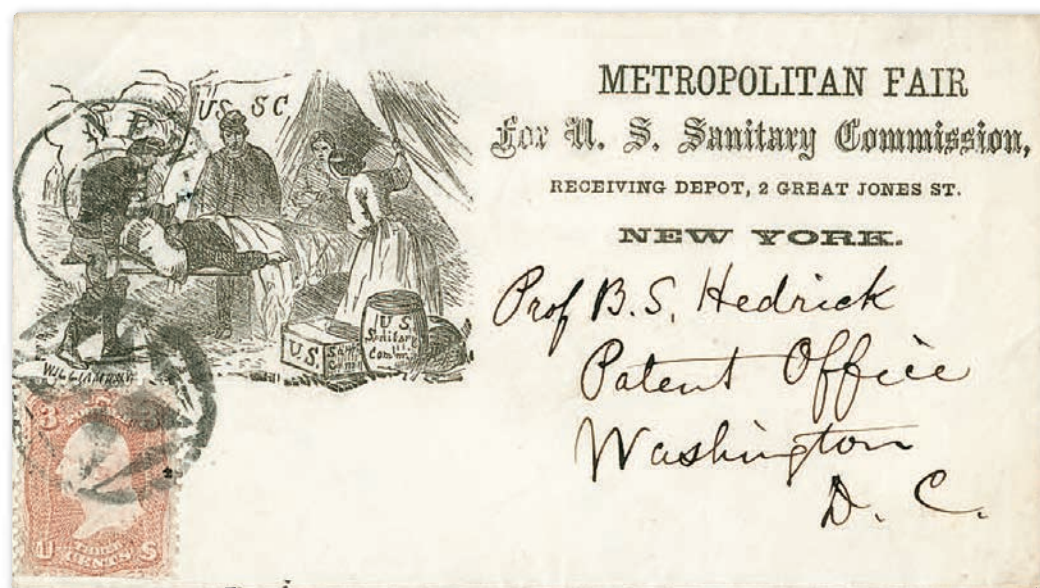 METROPOLITAN FAIR
For U. S. Sanitary Commission,
RECEIVING DEPOT, 2 GREAT JONES ST.
NEW YORK.
Prof B. S. Hedrick
Patent Office
Washington
D. C.
U.S. S C.
U S
Sanitary
Com
U.S.
3
U S
CENTS